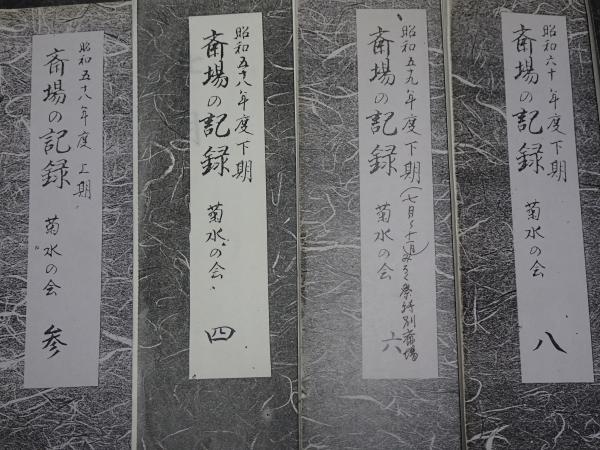 昭和五十八年度上期
斎場の記録
菊水の会
参
昭和五十八年度下期
斎場の記録
菊水の会
四
昭和五十九年度下期
斎場の記録
菊水の会
六
昭和六十年度下期
斎場の記録
菊水の会
八